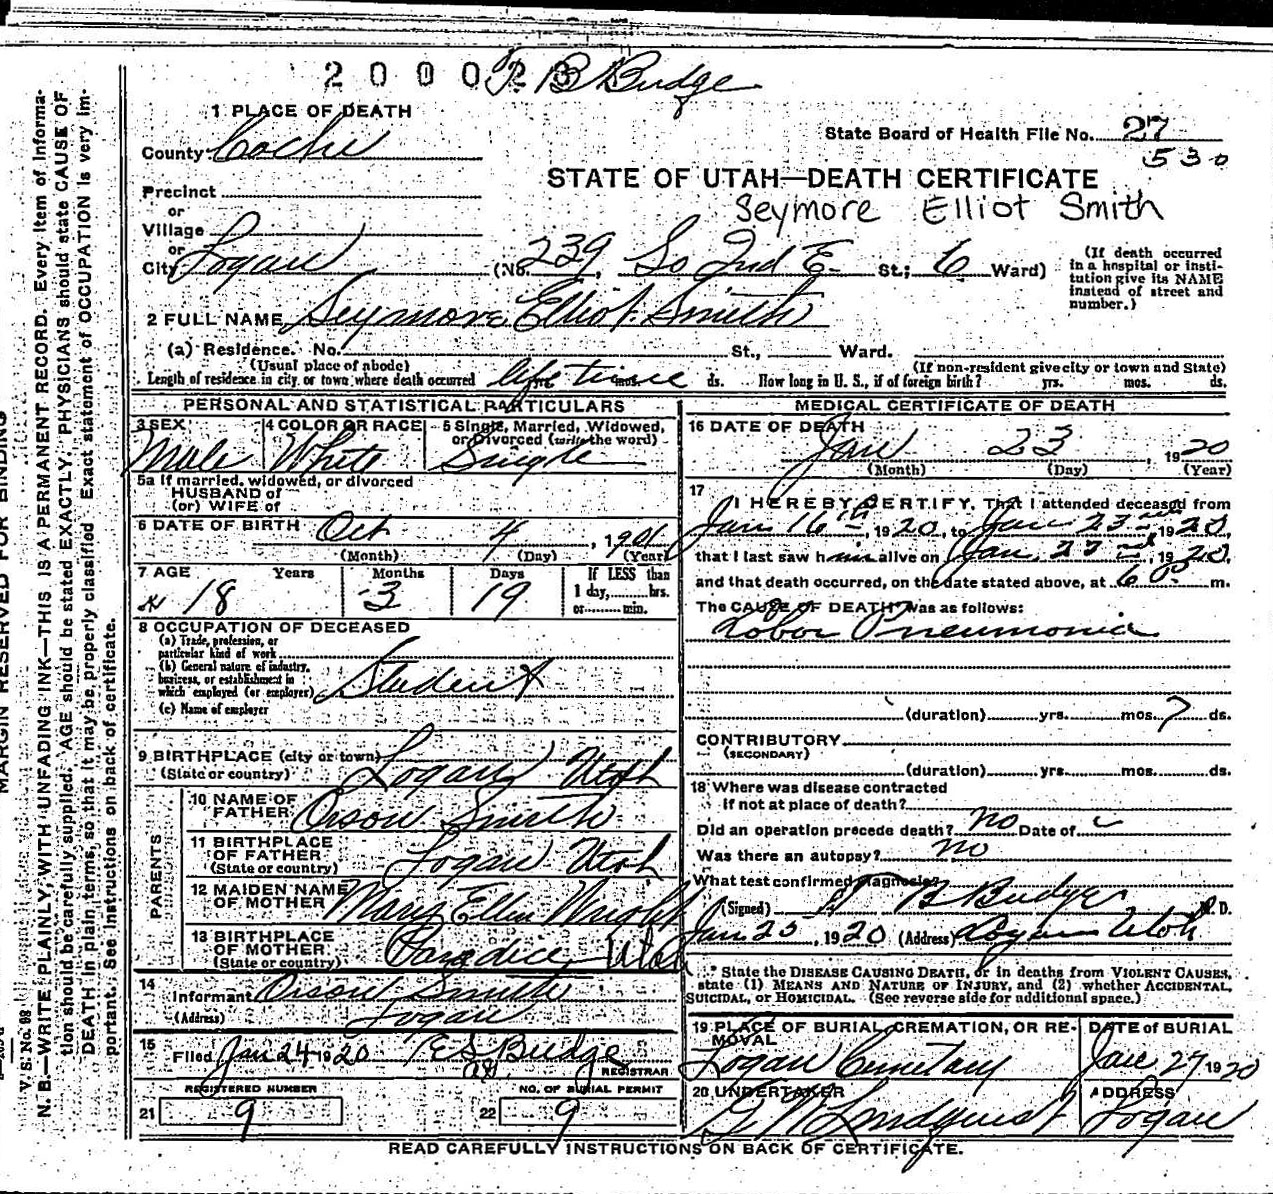 2 0 0 0 2 3 T. B Budge
1 PLACE OF DEATH
State Board of Health File No. 27
530
County Cache
STATE OF UTAH—DEATH CERTIFICATE
Precinct
Seymore Elliot Smith
or
Village
or
City Logan (No. 239, So 2nd E. St.; 6 Ward)
(If death occurred
in a hospital or insti-
tution give its NAME
instead of street and
number.)
2 FULL NAME Seymore Elliot Smith
(a) Residence. No. St., Ward.
(Usual place of abode) (If non-resident give city or town and State)
Length of residence in city or town where death occurred life time ds. How long in U. S., if of foreign birth? yrs. mos. ds.
PERSONAL AND STATISTICAL PARTICULARS
3 SEX 4 COLOR OR RACE 5 Single, Married, Widowed,
or Divorced (write the word)
Male White Single
5a If married, widowed, or divorced
HUSBAND of
(or) WIFE of
6 DATE OF BIRTH Oct 4, 1901
(Month) (Day) (Year)
7 AGE Years Months Days If LESS than
1 day, hrs.
or min.
18 3 19
8 OCCUPATION OF DECEASED
(a) Trade, profession, or
particular kind of work
(b) General nature of industry,
business, or establishment in
which employed (or employer) Student
(c) Name of employer
9 BIRTHPLACE (city or town) Logan Utah
(State or country)
PARENTS
10 NAME OF
FATHER Orson Smith
11 BIRTHPLACE
OF FATHER Logan Utah
(State or country)
12 MAIDEN NAME
OF MOTHER Mary Ellen Wright
13 BIRTHPLACE
OF MOTHER Paradice Utah
(State or country)
14
Informant Orson Smith
(Address) Logan
15
Filed Jan 24 1920 E S Budge
REGISTRAR
REGISTERED NUMBER NO. OF BURIAL PERMIT
21 9 22 9
MEDICAL CERTIFICATE OF DEATH
16 DATE OF DEATH
Jan 23, 1920
(Month) (Day) (Year)
17
I HEREBY CERTIFY, That I attended deceased from
Jan 16th, 1920, to Jan 23rd 1920,
that I last saw him alive on Jan 23rd, 1920,
and that death occurred, on the date stated above, at 6 00 m.
The CAUSE OF DEATH was as follows:
Lobar Pneumonia
(duration) yrs. mos. 7 ds.
CONTRIBUTORY
(SECONDARY)
(duration) yrs. mos. ds.
18 Where was disease contracted
if not at place of death?
Did an operation precede death? no Date of
Was there an autopsy? no
What test confirmed diagnosis?
(Signed) T B Budge M. D.
Jan 23, 1920 (Address) Logan Utah
* State the DISEASE CAUSING DEATH, or in deaths from VIOLENT CAUSES,
state (1) MEANS AND NATURE OF INJURY, and (2) whether ACCIDENTAL,
SUICIDAL, or HOMICIDAL. (See reverse side for additional space.)
19 PLACE OF BURIAL, CREMATION, OR RE-
MOVAL
DATE of BURIAL
Logan Cemetary Jan 27 1920
20 UNDERTAKER ADDRESS
G W Lindquist Logan
READ CAREFULLY INSTRUCTIONS ON BACK OF CERTIFICATE.
MARGIN RESERVED FOR BINDING
V. S. No. 68
N. B.—WRITE PLAINLY, WITH UNFADING INK—THIS IS A PERMANENT RECORD. Every item of informa-
tion should be carefully supplied. AGE should be stated EXACTLY. PHYSICIANS should state CAUSE OF
DEATH in plain terms, so that it may be properly classified. Exact statement of OCCUPATION is very im-
portant. See instructions on back of certificate.